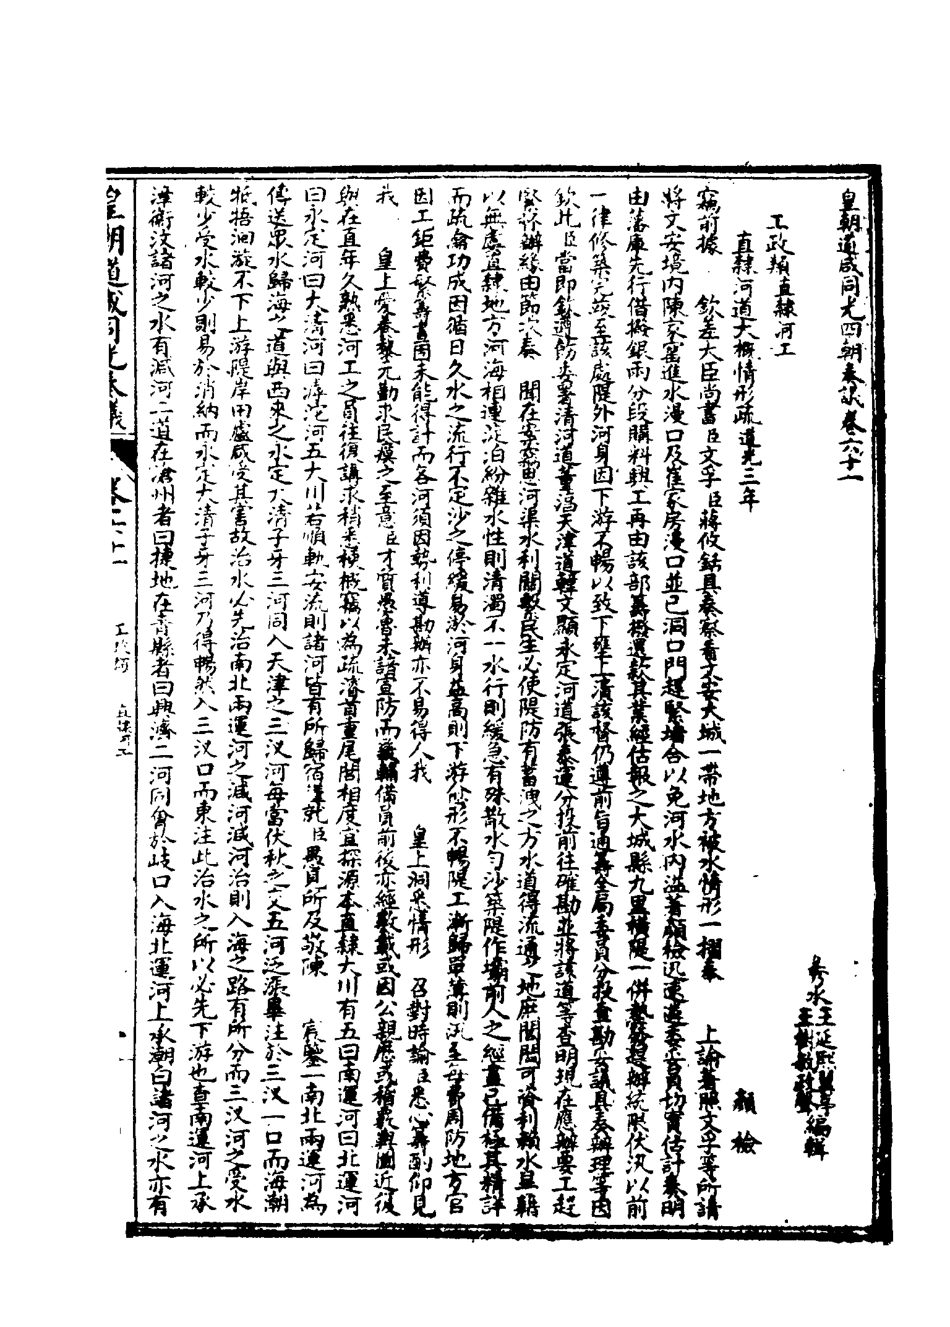 皇朝道咸同光四朝奏議卷六十一
秀水王延熙 王樹敏 編輯
工政類直隸河工
直隸河道大概情形疏道光三年 顏檢
竊前據 欽差大臣尚書臣文孚臣蔣攸銛具奏察看文安大城一帶地方被水情形一摺奉 上諭著照文孚等所請
將文安境內陳家窰進水漫口及崔家房漫口並已涸口門趕緊堵合以免河水內溢著顏檢迅速遴委妥員切實估計奏明
由藩庫先行借撥銀兩分段購料興工再由該部籌撥還款其業經估報之大城縣九里橫隄一併勒務趕辦統限伏汛以前
一律修築完竣至該處隄外河身因下游不暢以致下壅上潰該督仍遵前旨通籌全局委員分投查勘妥議具奏辦理等因
欽此臣當即欽遵飭委署清河道董淳天津道韓文顯永定河道張泰運分投前往確勘並將該道等查明現在應辦要工趕
緊將辦緣由節次奏 聞在案茲思河渠水利關繫民生必使隄防有蓄洩之方水道得流通之地庶閭閻可資利賴水旱藉
以無虞直隸地方河海相連淀泊紛雜水性則清濁不一水行則緩急有殊散水勻沙築隄作壩前人之經畫已備極其精詳
而疏瀹功成因循日久水之流行不定沙之停緩易淤河身益高則下游分形不暢隄工漸歸單薄則汛至每費周防地方官
因工鉅費繁籌畫固未能得計而各河須因勢利導勘辦亦不易得人我 皇上洞悉情形 召對時諭臣悉心籌酌仰見
我 皇上愛養黎元勤求民瘼之至意臣才質愚魯未諳宣防而畿輔備員前後亦經數載或因公親歷或稽載輿圖近復
與在直年久熟悉河工之員往復講求稍悉梗概竊以為疏濬首重尾閭相度宜探源本直隸大川有五曰南運河曰北運河
曰永定河曰大清河曰滹沱河五大川若順軌安流則諸河皆有所歸宿謹就臣愚見所及敬陳 宸鑒一南北兩運河為
傳送眾水歸海之道與西來之水定大清子牙三河同入天津之三汊河每當伏秋之交五河泛漲畢注於三汊一口而海潮
牴牾洄漩不下上游隄岸田廬咸受其害故治水必先治南北兩運河之減河減河治則入海之路有所分而三汊河之受水
較少受水較少則易於消納而永定大清子牙三河乃得暢然入三汊口而東注此治水之所以必先下游也查南運河上承
漳衛汶諸河之水有減河二道在滄州者曰捷地在青縣者曰興濟二河同會於歧口入海北運河上承潮白諸河之水亦有
皇朝道咸同光奏議 卷六十一 工政類 直隸河工 一